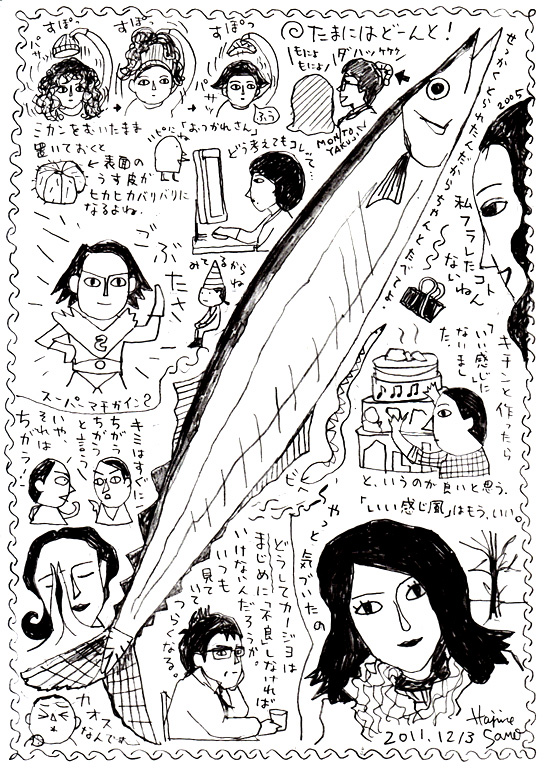 すぽっ
すぽっ
すぽっ
パサッ
パサ
ふぅ
たまにはどーんと!
もにょもにょ
ダハッケケケ
MONTO YAKUJI
ミカンをむいたまま
置いておくと
←表面の
うす皮が
ヒカヒカバリバリに
なるよね.
「おつかれさん」
どう考えてもコレって…
せっかくとられたんだからちゃんとたべてね
2005
私フラレたコト
ないねん
ごぶたさ
みてるから
ね
スーパーマチガイン2
キミはすぐに
ちがう
ちがう
と言う
いや、
それは
ちがう!
キチンと作ったら
「いい感じに
なりまし
た。
と、いうのが良いと思う.
「いい感じ風」はもう、いい。
ビー
やっと気づいたの
どうしてカージョは
まじめに「不良」しなければ
いけないんだろうか。
いつも
見て
いて
つらくなる。
カオス
なんです。
Hajime
Sano
2011.12/3